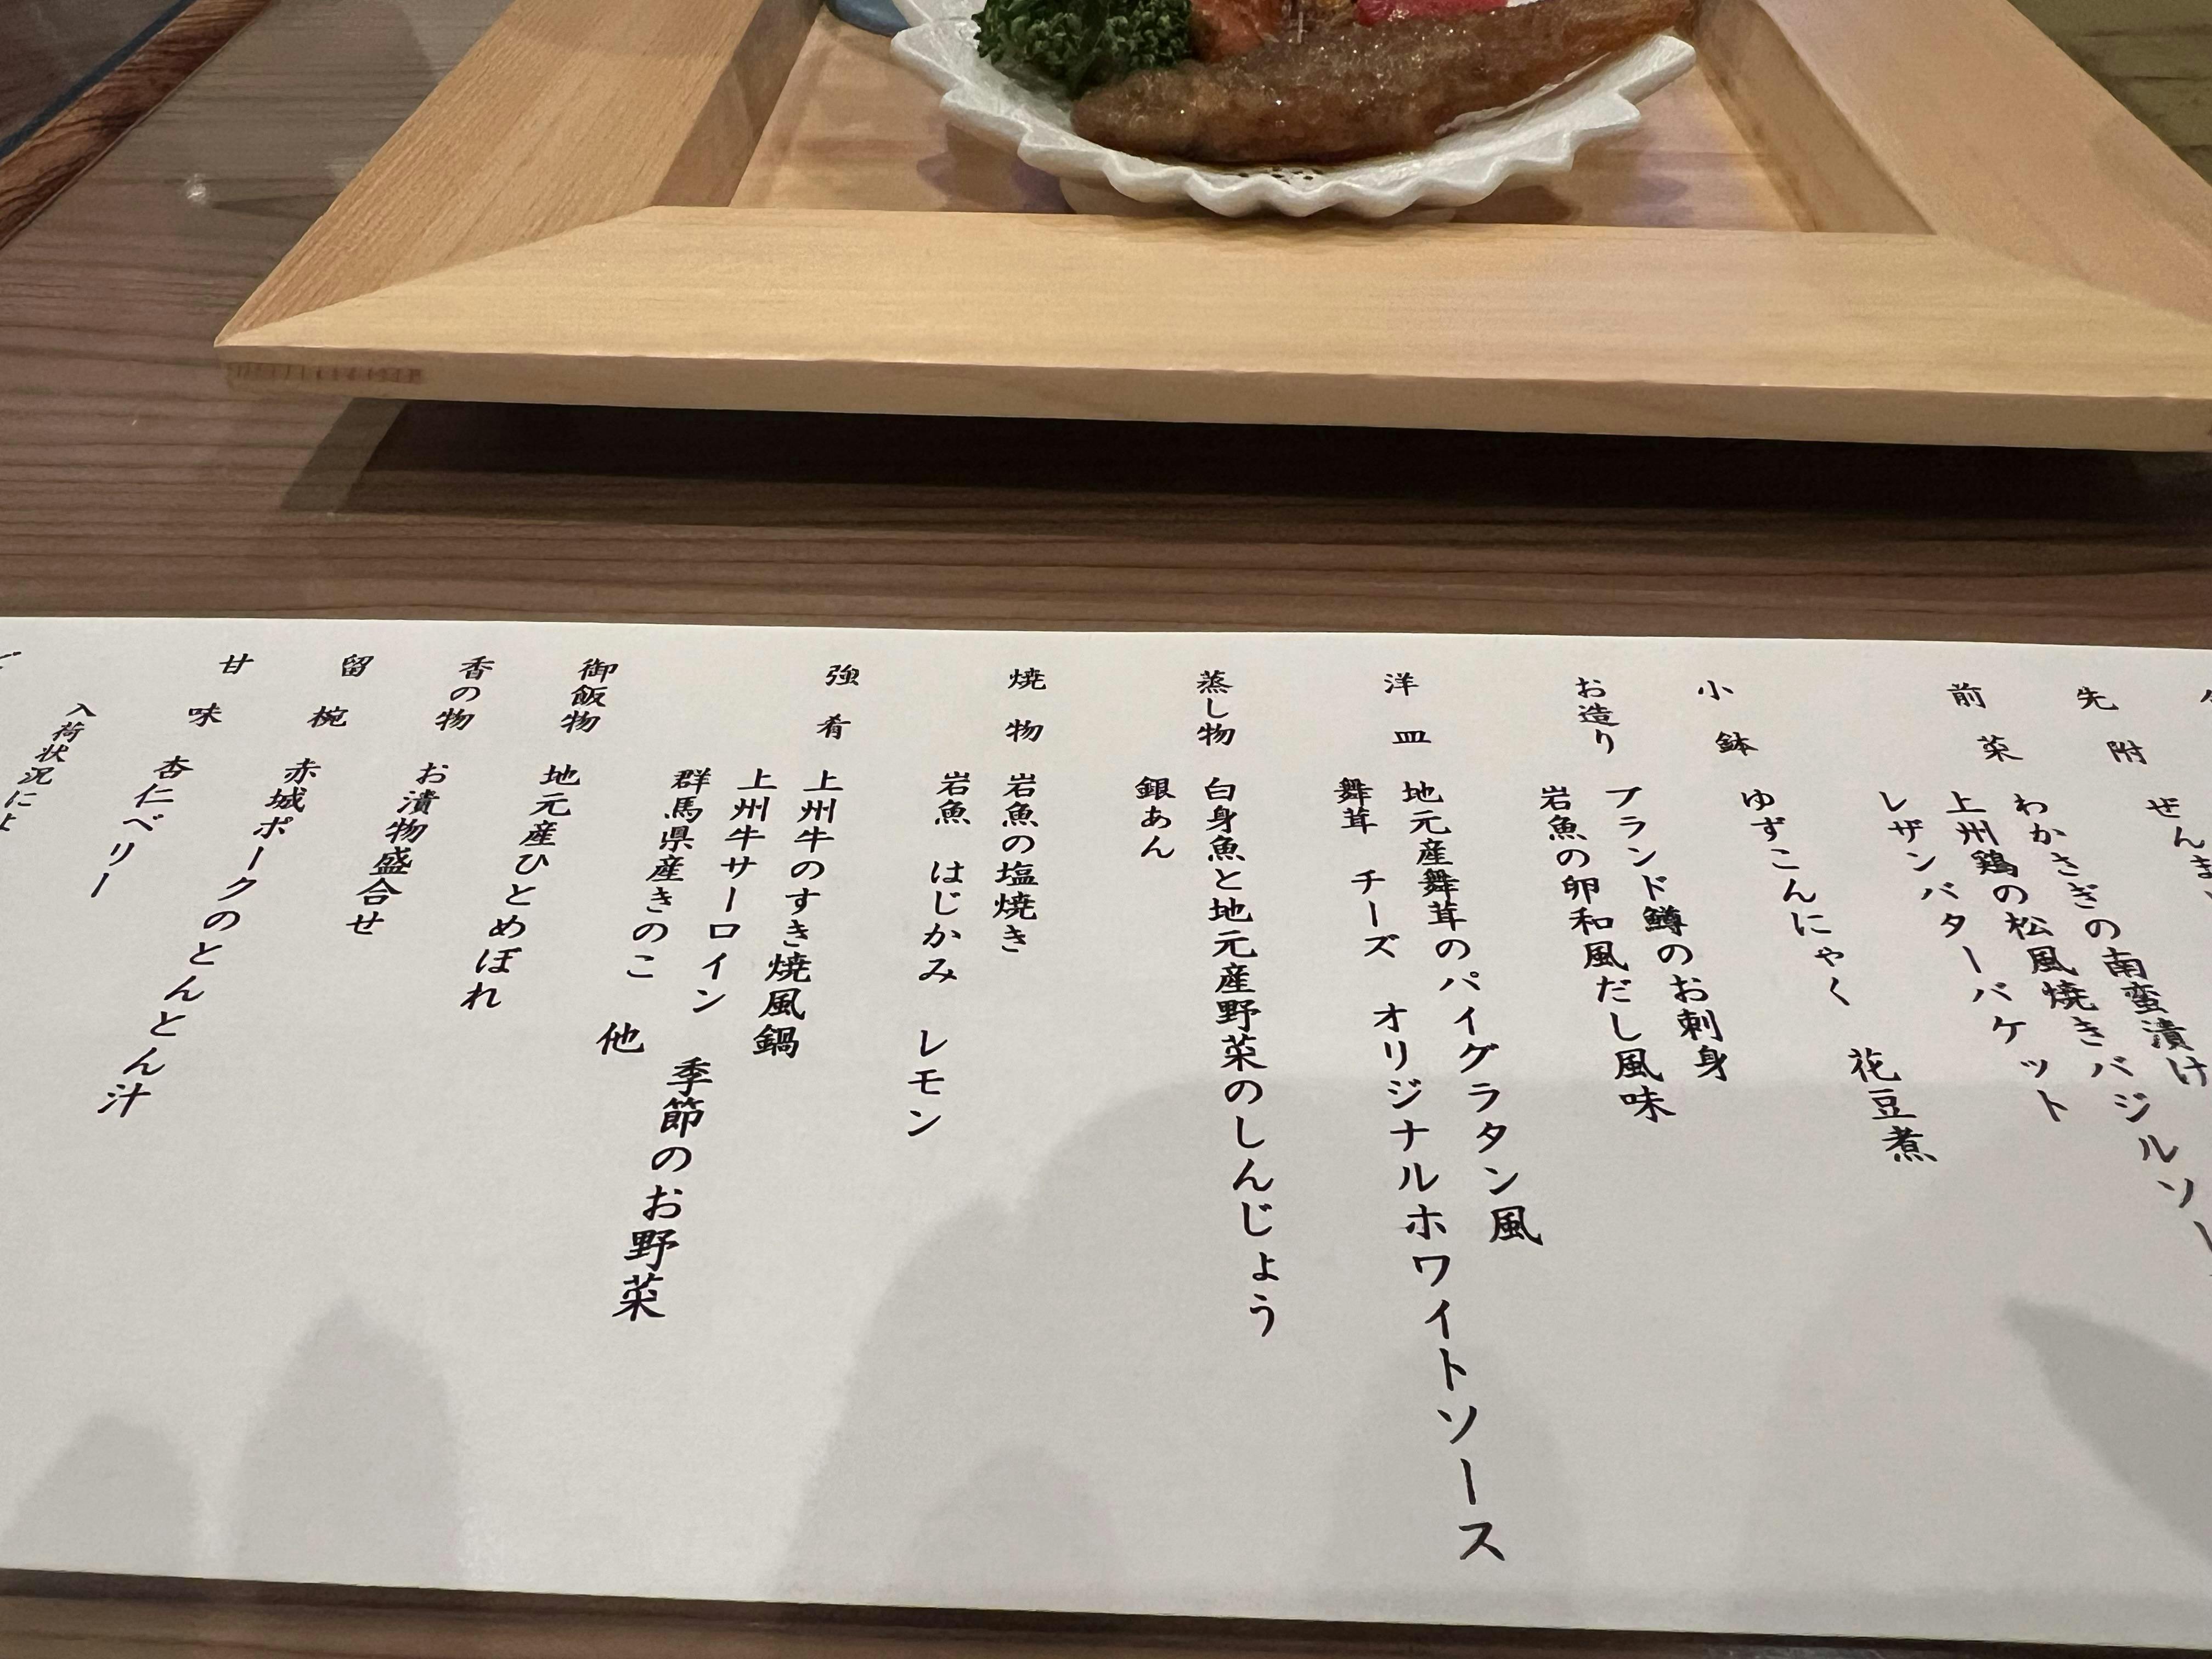 先附
ぜんま
前菜
わかさぎの南蛮漬け
上州鶏の松風焼きバジルソー
レザンバターバケット
小鉢
ゆずこんにゃく 花豆煮
お造り
ブランド鱒のお刺身
岩魚の卵和風だし風味
洋皿
地元産舞茸のパイグラタン風
舞茸 チーズ オリジナルホワイトソース
蒸し物
白身魚と地元産野菜のしんじょう
銀あん
焼物
岩魚の塩焼き
岩魚 はじかみ レモン
強肴
上州牛のすき焼風鍋
上州牛サーロイン 季節のお野菜
群馬県産きのこ 他
御飯物
地元産ひとめぼれ
香の物
お漬物盛合せ
留椀
赤城ポークのとんとん汁
甘味
杏仁ベリー
入荷状況によ